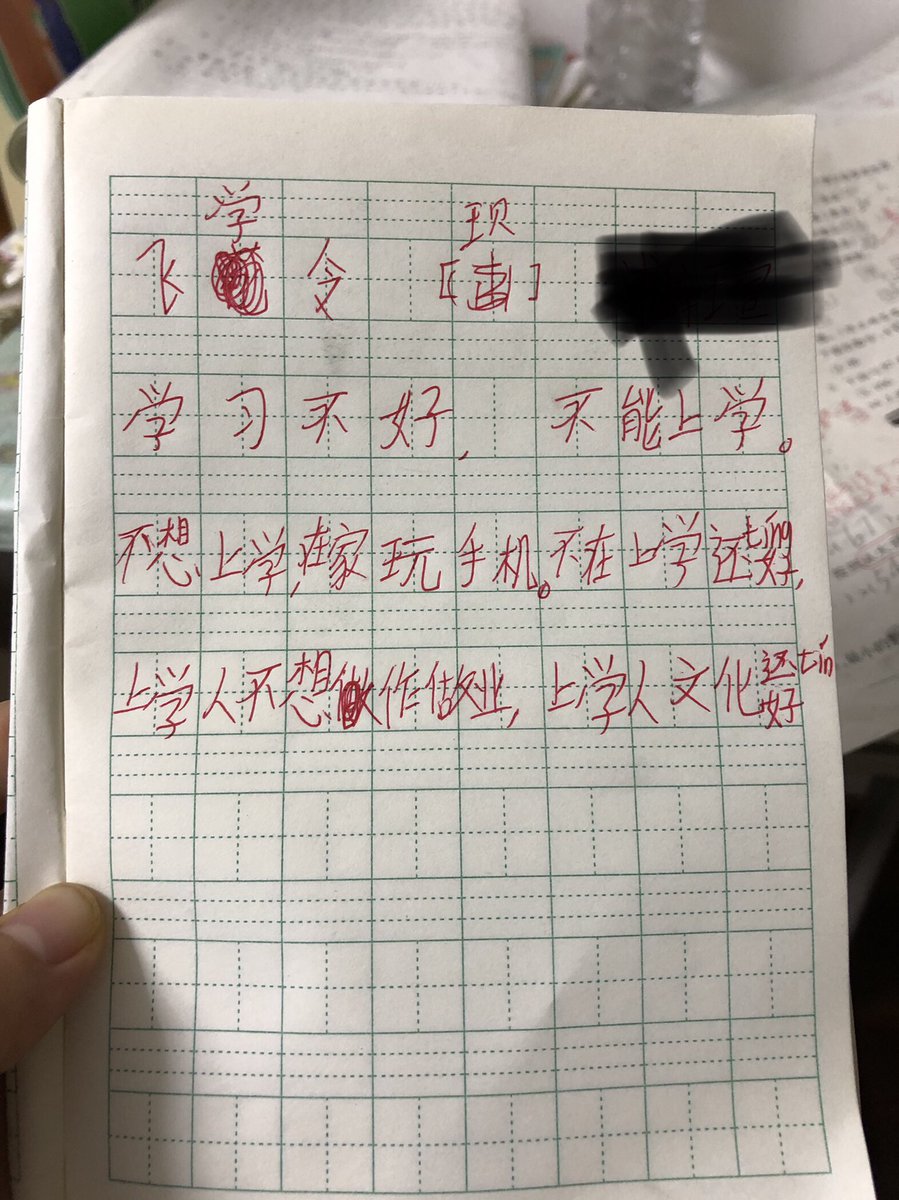 飞学令 [唐] 现
学习不好, 不能上学。
不想上学,在家玩手机。不在上学还ting好,
上学人不想作做业,上学人文化还tin好